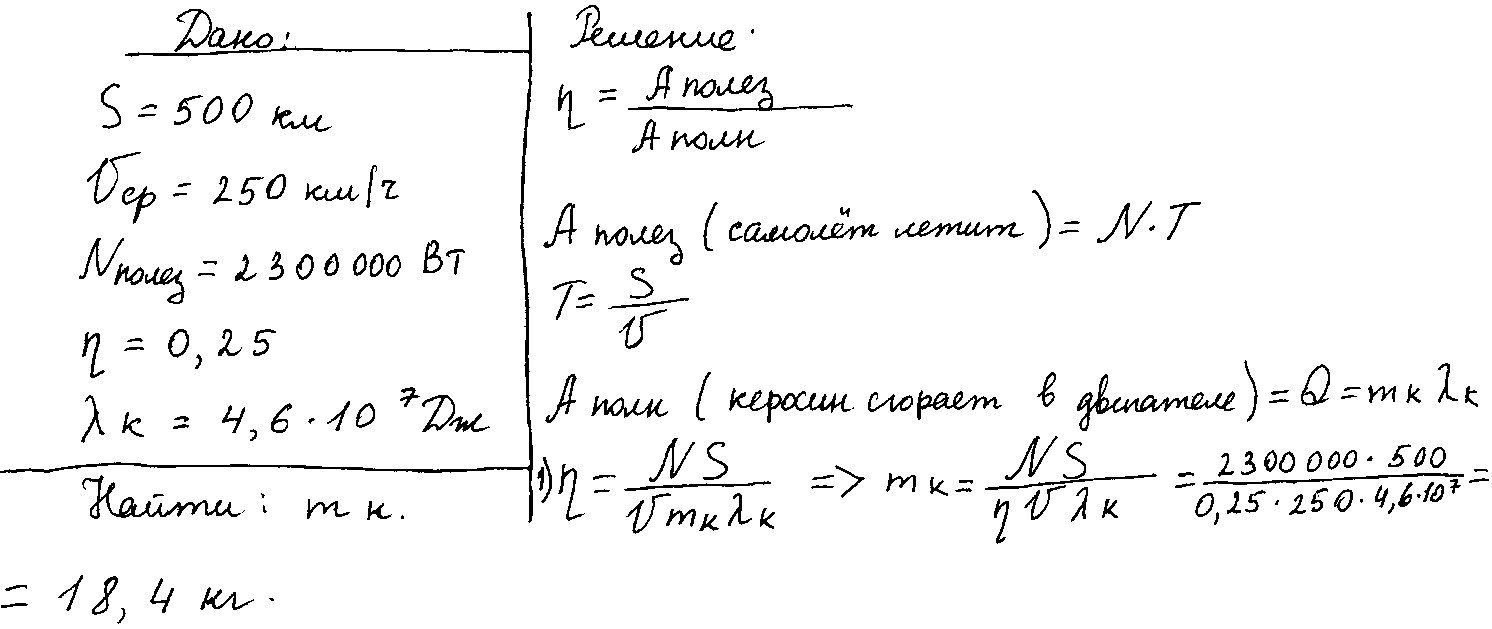 Дано:
S = 500 км
Vср = 250 км/ч
Nполез = 2300000 Вт
η = 0,25
λк = 4,6·10⁷ Дж
Найти: mк.
Решение.
η = Aполез / Aполн
Aполез (самолёт летит) = N·T
T = S / V
Aполн (керосин сгорает в двигателе) = Q = mкλк
1) η = NS / Vmкλк => mк = NS / ηVλк = 2300000·500 / 0,25·250·4,6·10⁷ =
= 18,4 кг.